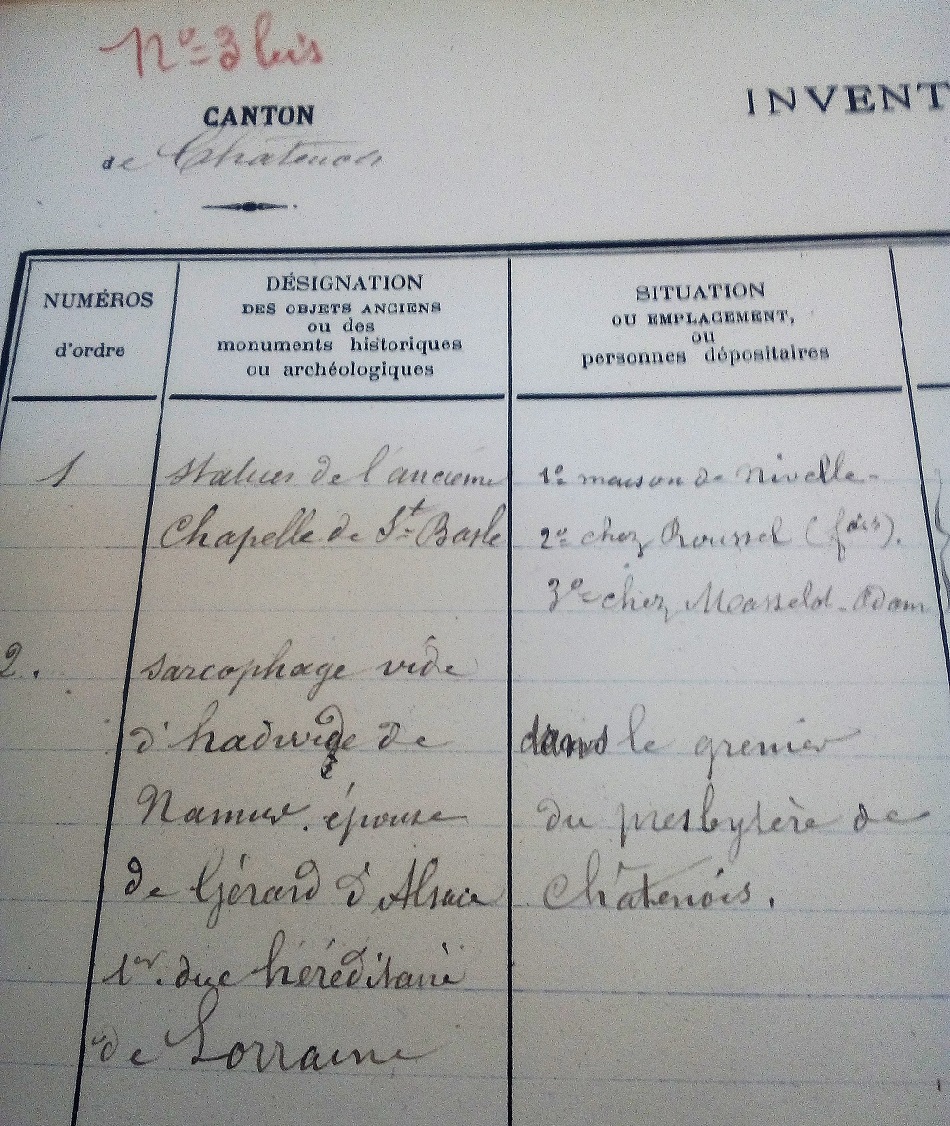 N° 3 bis
CANTON
de Châtenois
INVENT
NUMÉROS
d'ordre
DÉSIGNATION
DES OBJETS ANCIENS
ou des
monuments historiques
ou archéologiques
SITUATION
OU EMPLACEMENT,
ou
personnes dépositaires
1
statues de l'ancienne
Chapelle de St Basle
1° maison de Nivelle
2° chez Roussel (fois).
3° chez Masselot-Odam
2.
sarcophage vide
d'hadwige de
Namur. épouse
de Gérard d'Alsace
1er. duc héréditaire
de Lorraine
dans le grenier
du presbytère de
Châtenois.